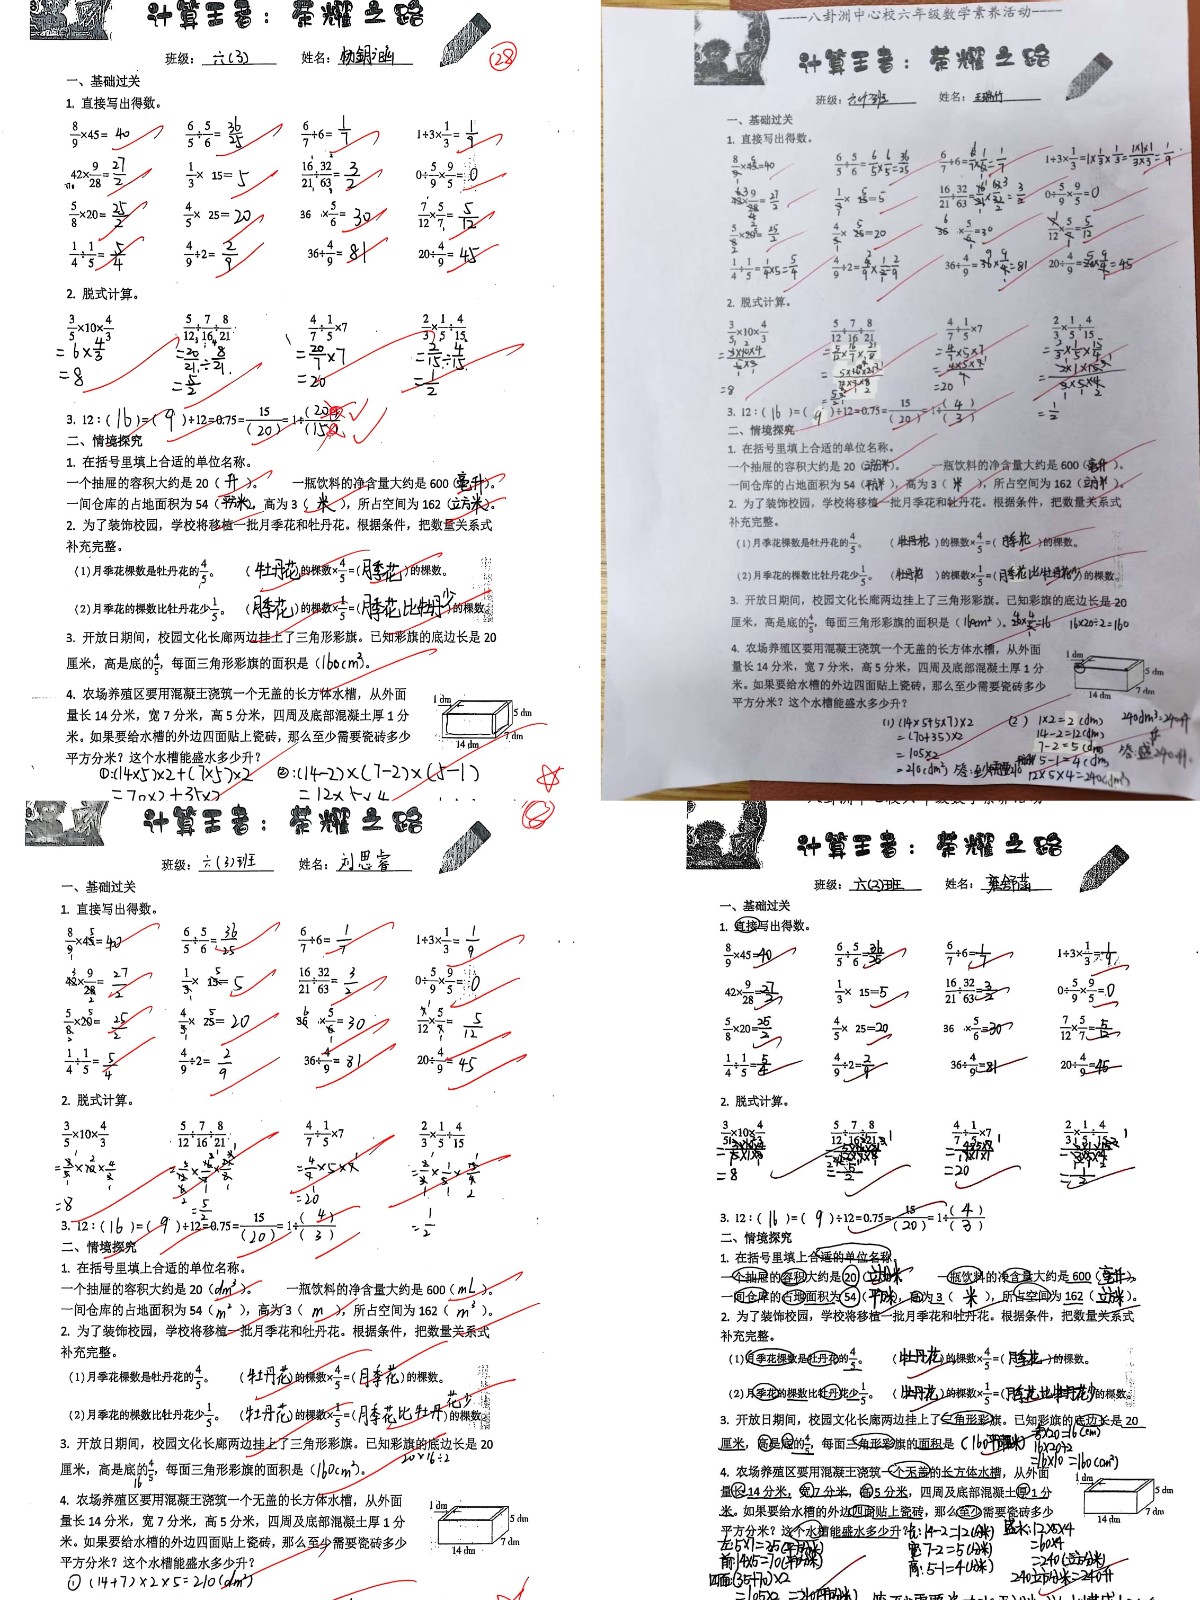 计算王者：荣耀之路
班级：六(3) 姓名：
28
一、基础过关
1. 直接写出得数。
8/9×45=40 6/5÷5/6=36/25 6/7÷6=1/7 1÷3×1/3=1/9
42×9/28=27/2 1/3×15=5 16/21÷32/63=3/2 0÷5/9×9/5=0
5/8×20=25/2 4/5×25=20 36×5/6=30 7/12×5/7=5/12
1/4÷1/5=5/4 4/9÷2=2/9 36÷4/9=81 20÷4/9=45
2. 脱式计算。
3/5×10×4/3 5/12÷7/16÷8/21 4/7÷1/5×7 2/3×1/5÷4/15
=6×4/3 =20/21÷8/21 =20/7×7 =2/15÷4/15
=8 =5/2 =20 =1/2
3. 12：(16)=(9)÷12=0.75=15/(20)=1÷(20)/(15)
二、情境探究
1. 在括号里填上合适的单位名称。
一个抽屉的容积大约是 20（升）。 一瓶饮料的净含量大约是 600（毫升）。
一间仓库的占地面积为 54（平方米），高为 3（米），所占空间为 162（立方米）。
2. 为了装饰校园，学校将移植一批月季花和牡丹花。根据条件，把数量关系式
补充完整。
(1)月季花棵数是牡丹花的4/5。 （牡丹花）的棵数×4/5=（月季花）的棵数。
(2)月季花的棵数比牡丹花少1/5。 （月季花）的棵数×1/5=（月季花比牡丹少）的棵数。
3. 开放日期间，校园文化长廊两边挂上了三角形彩旗。已知彩旗的底边长是 20
厘米，高是底的4/5，每面三角形彩旗的面积是（160cm²）。
4. 农场养殖区要用混凝王浇筑一个无盖的长方体水槽，从外面
量长 14 分米，宽 7 分米，高 5 分米，四周及底部混凝土厚 1 分
米。如果要给水槽的外边四面贴上瓷砖，那么至少需要瓷砖多少
平方分米？这个水槽能盛水多少升？
1 dm 5 dm 7 dm 14 dm
①:(14×5)×2+(7×5)×2 ②:(14-2)×(7-2)×(5-1)
=70×2+35×2 =12×5×4
-----八卦洲中心校六年级数学素养活动----
计算王者：荣耀之路
班级： 姓名：
一、基础过关
1. 直接写出得数。
8/9×45=40 6/5÷5/6=6/5×6/5=36/25 6/7÷6=6/7×1/6=1/7 1÷3×1/3=1×1/3×1/3=1×1×1/3×3=1/9
42×9/28=27/2 1/3×15=5 16/21÷32/63=16/21×63/32=3/2 0÷5/9×9/5=0
5/8×20=25/2 4/5×25=20 36×5/6=30 7/12×5/7=5/12
1/4÷1/5=1/4×5=5/4 4/9÷2=4/9×1/2=2/9 36÷4/9=36×9/4=81 20÷4/9=20×9/4=45
2. 脱式计算。
3/5×10×4/3 5/12÷7/16÷8/21 4/7÷1/5×7 2/3×1/5÷4/15
=5/12×16/7×21/8 =4/7×5×7 =2/3×1/5×15/4
=8 =5/2 =20 =1/2
3. 12：(16)=(9)÷12=0.75=15/(20)=1÷(4)/(3)
二、情境探究
1. 在括号里填上合适的单位名称。
一个抽屉的容积大约是 20（立方分米）。 一瓶饮料的净含量大约是 600（毫升）。
一间仓库的占地面积为 54（平方米），高为 3（米），所占空间为 162（立方米）。
2. 为了装饰校园，学校将移植一批月季花和牡丹花。根据条件，把数量关系式
补充完整。
(1)月季花棵数是牡丹花的4/5。 （牡丹花）的棵数×4/5=（月季花）的棵数。
(2)月季花的棵数比牡丹花少1/5。 （牡丹花）的棵数×1/5=（月季花比牡丹花少）的棵数。
3. 开放日期间，校园文化长廊两边挂上了三角形彩旗。已知彩旗的底边长是 20
厘米，高是底的4/5，每面三角形彩旗的面积是（160cm²）。20×4/5=16 16×20÷2=160
4. 农场养殖区要用混凝王浇筑一个无盖的长方体水槽，从外面
量长 14 分米，宽 7 分米，高 5 分米，四周及底部混凝土厚 1 分
米。如果要给水槽的外边四面贴上瓷砖，那么至少需要瓷砖多少
平方分米？这个水槽能盛水多少升？
1 dm 5 dm 7 dm 14 dm
(1) (14×5+5×7)×2 (2) 1×2=2(dm) 240dm³=240升
=(70+35)×2 14-2=12(dm)
=105×2 7-2=5(dm) 答:盛240升.
=210(dm²) 5-1=4(dm)
12×5×4=240(dm³)
计算王者：荣耀之路
班级：六(3)班 姓名：刘思睿
一、基础过关
1. 直接写出得数。
8/9×45=40 6/5÷5/6=36/25 6/7÷6=1/7 1÷3×1/3=1/9
42×9/28=27/2 1/3×15=5 16/21÷32/63=3/2 0÷5/9×9/5=0
5/8×20=25/2 4/5×25=20 36×5/6=30 7/12×5/7=5/12
1/4÷1/5=5/4 4/9÷2=2/9 36÷4/9=81 20÷4/9=45
2. 脱式计算。
3/5×10×4/3 5/12÷7/16÷8/21 4/7÷1/5×7 2/3×1/5÷4/15
=3/5×10×4/3 =5/12×16/7×21/8 =4/7×5×7 =2/3×1/5×15/4
=8 =5/2 =20 =1/2
3. 12：(16)=(9)÷12=0.75=15/(20)=1÷(4)/(3)
二、情境探究
1. 在括号里填上合适的单位名称。
一个抽屉的容积大约是 20（dm³）。 一瓶饮料的净含量大约是 600（mL）。
一间仓库的占地面积为 54（m²），高为 3（m），所占空间为 162（m³）。
2. 为了装饰校园，学校将移植一批月季花和牡丹花。根据条件，把数量关系式
补充完整。
(1)月季花棵数是牡丹花的4/5。 （牡丹花）的棵数×4/5=（月季花）的棵数。
(2)月季花的棵数比牡丹花少1/5。 （牡丹花）的棵数×1/5=（月季花比牡丹花少）的棵数。
3. 开放日期间，校园文化长廊两边挂上了三角形彩旗。已知彩旗的底边长是 20
20×16÷2
厘米，高是底的4/5，每面三角形彩旗的面积是（160cm²）。
16
4. 农场养殖区要用混凝王浇筑一个无盖的长方体水槽，从外面
量长 14 分米，宽 7 分米，高 5 分米，四周及底部混凝土厚 1 分
米。如果要给水槽的外边四面贴上瓷砖，那么至少需要瓷砖多少
平方分米？这个水槽能盛水多少升？
1 dm 5 dm 7 dm 14 dm
① (14+7)×2×5=210(dm²)
八卦洲中心校六年级数学素养活动
计算王者：荣耀之路
班级：六(3)班 姓名：
一、基础过关
1. 直接写出得数。
8/9×45=40 6/5÷5/6=36/25 6/7÷6=1/7 1÷3×1/3=1/9
42×9/28=27/2 1/3×15=5 16/21÷32/63=3/2 0÷5/9×9/5=0
5/8×20=25/2 4/5×25=20 36×5/6=30 7/12×5/7=5/12
1/4÷1/5=5/4 4/9÷2=2/9 36÷4/9=81 20÷4/9=45
2. 脱式计算。
3/5×10×4/3 5/12÷7/16÷8/21 4/7÷1/5×7 2/3×1/5÷4/15
=8 =5/2 =20 =1/2
3. 12：(16)=(9)÷12=0.75=15/(20)=1÷(4)/(3)
二、情境探究
1. 在括号里填上合适的单位名称。
一个抽屉的容积大约是 20 一瓶饮料的净含量大约是 600（毫升）。
一间仓库的占地面积为 54（平方米），高为 3（米），所占空间为 162（立方米）。
2. 为了装饰校园，学校将移植一批月季花和牡丹花。根据条件，把数量关系式
补充完整。
(1)月季花棵数是牡丹花的4/5。 （牡丹花）的棵数×4/5=（月季花）的棵数。
(2)月季花的棵数比牡丹花少1/5。 （牡丹花）的棵数×1/5=（月季花比牡丹花少）的棵数。
3. 开放日期间，校园文化长廊两边挂上了三角形彩旗。已知彩旗的底边长是 20
厘米，高是底的4/5，每面三角形彩旗的面积是（160平方厘米）
4/5×20=16(cm)
16×20÷2
=16×10 =160(cm²)
4. 农场养殖区要用混凝王浇筑一个无盖的长方体水槽，从外面
量长 14 分米，宽 7 分米，高 5 分米，四周及底部混凝土厚 1 分
米。如果要给水槽的外边四面贴上瓷砖，那么至少需要瓷砖多少
平方分米？这个水槽能盛水多少升？
1 dm 5 dm 7 dm 14 dm
长:14-2=12(分米) 盛水:12×5×4
宽:7-2=5(分米) =60×4
前:14×5=70(平方分米) 高:5-1=4(分米) =240(立方分米)
四面:(35+70)×2 240立方分米=240升
=105×2 =210(平方分米)